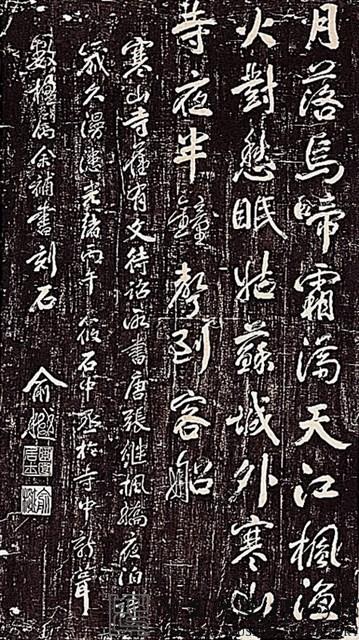 月落烏啼霜滿天江楓漁
火對愁眠姑蘇城外寒山
寺夜半鐘聲到客船
寒山寺舊有文待詔所書唐張繼楓橋夜泊詩
歲久漫漶光緒丙午筱石中丞於寺中新葺
數楹屬余補書刻石
俞樾
俞樾